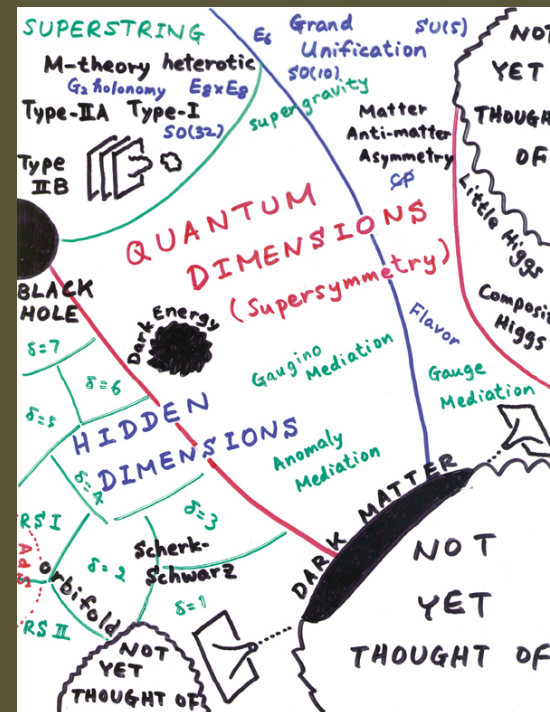 SUPERSTRING
M-theory heterotic
G₂ holonomy E8×E8
Type-IIA Type-I
SO(32)
Type
IIB
E₆
Grand
Unification
SU(5)
SO(10)
supergravity
Matter
Anti-matter
Asymmetry
CP
NOT
YET
THOUGH
OF
Little Higgs
Composi
Higgs
QUANTUM
DIMENSIONS
(Supersymmetry)
BLACK
HOLE
Dark Energy
Flavor
Gaugino
Mediation
Gauge
Mediation
Anomaly
Mediation
HIDDEN
DIMENSIONS
δ=7
δ=6
δ=5
δ=4
δ=3
δ=2
δ=1
RS I
AdS
RS II
orbifold
Scherk-
Schwarz
DARK MATTER
NOT
YET
THOUGHT OF
NOT
YET
THOUGHT OF